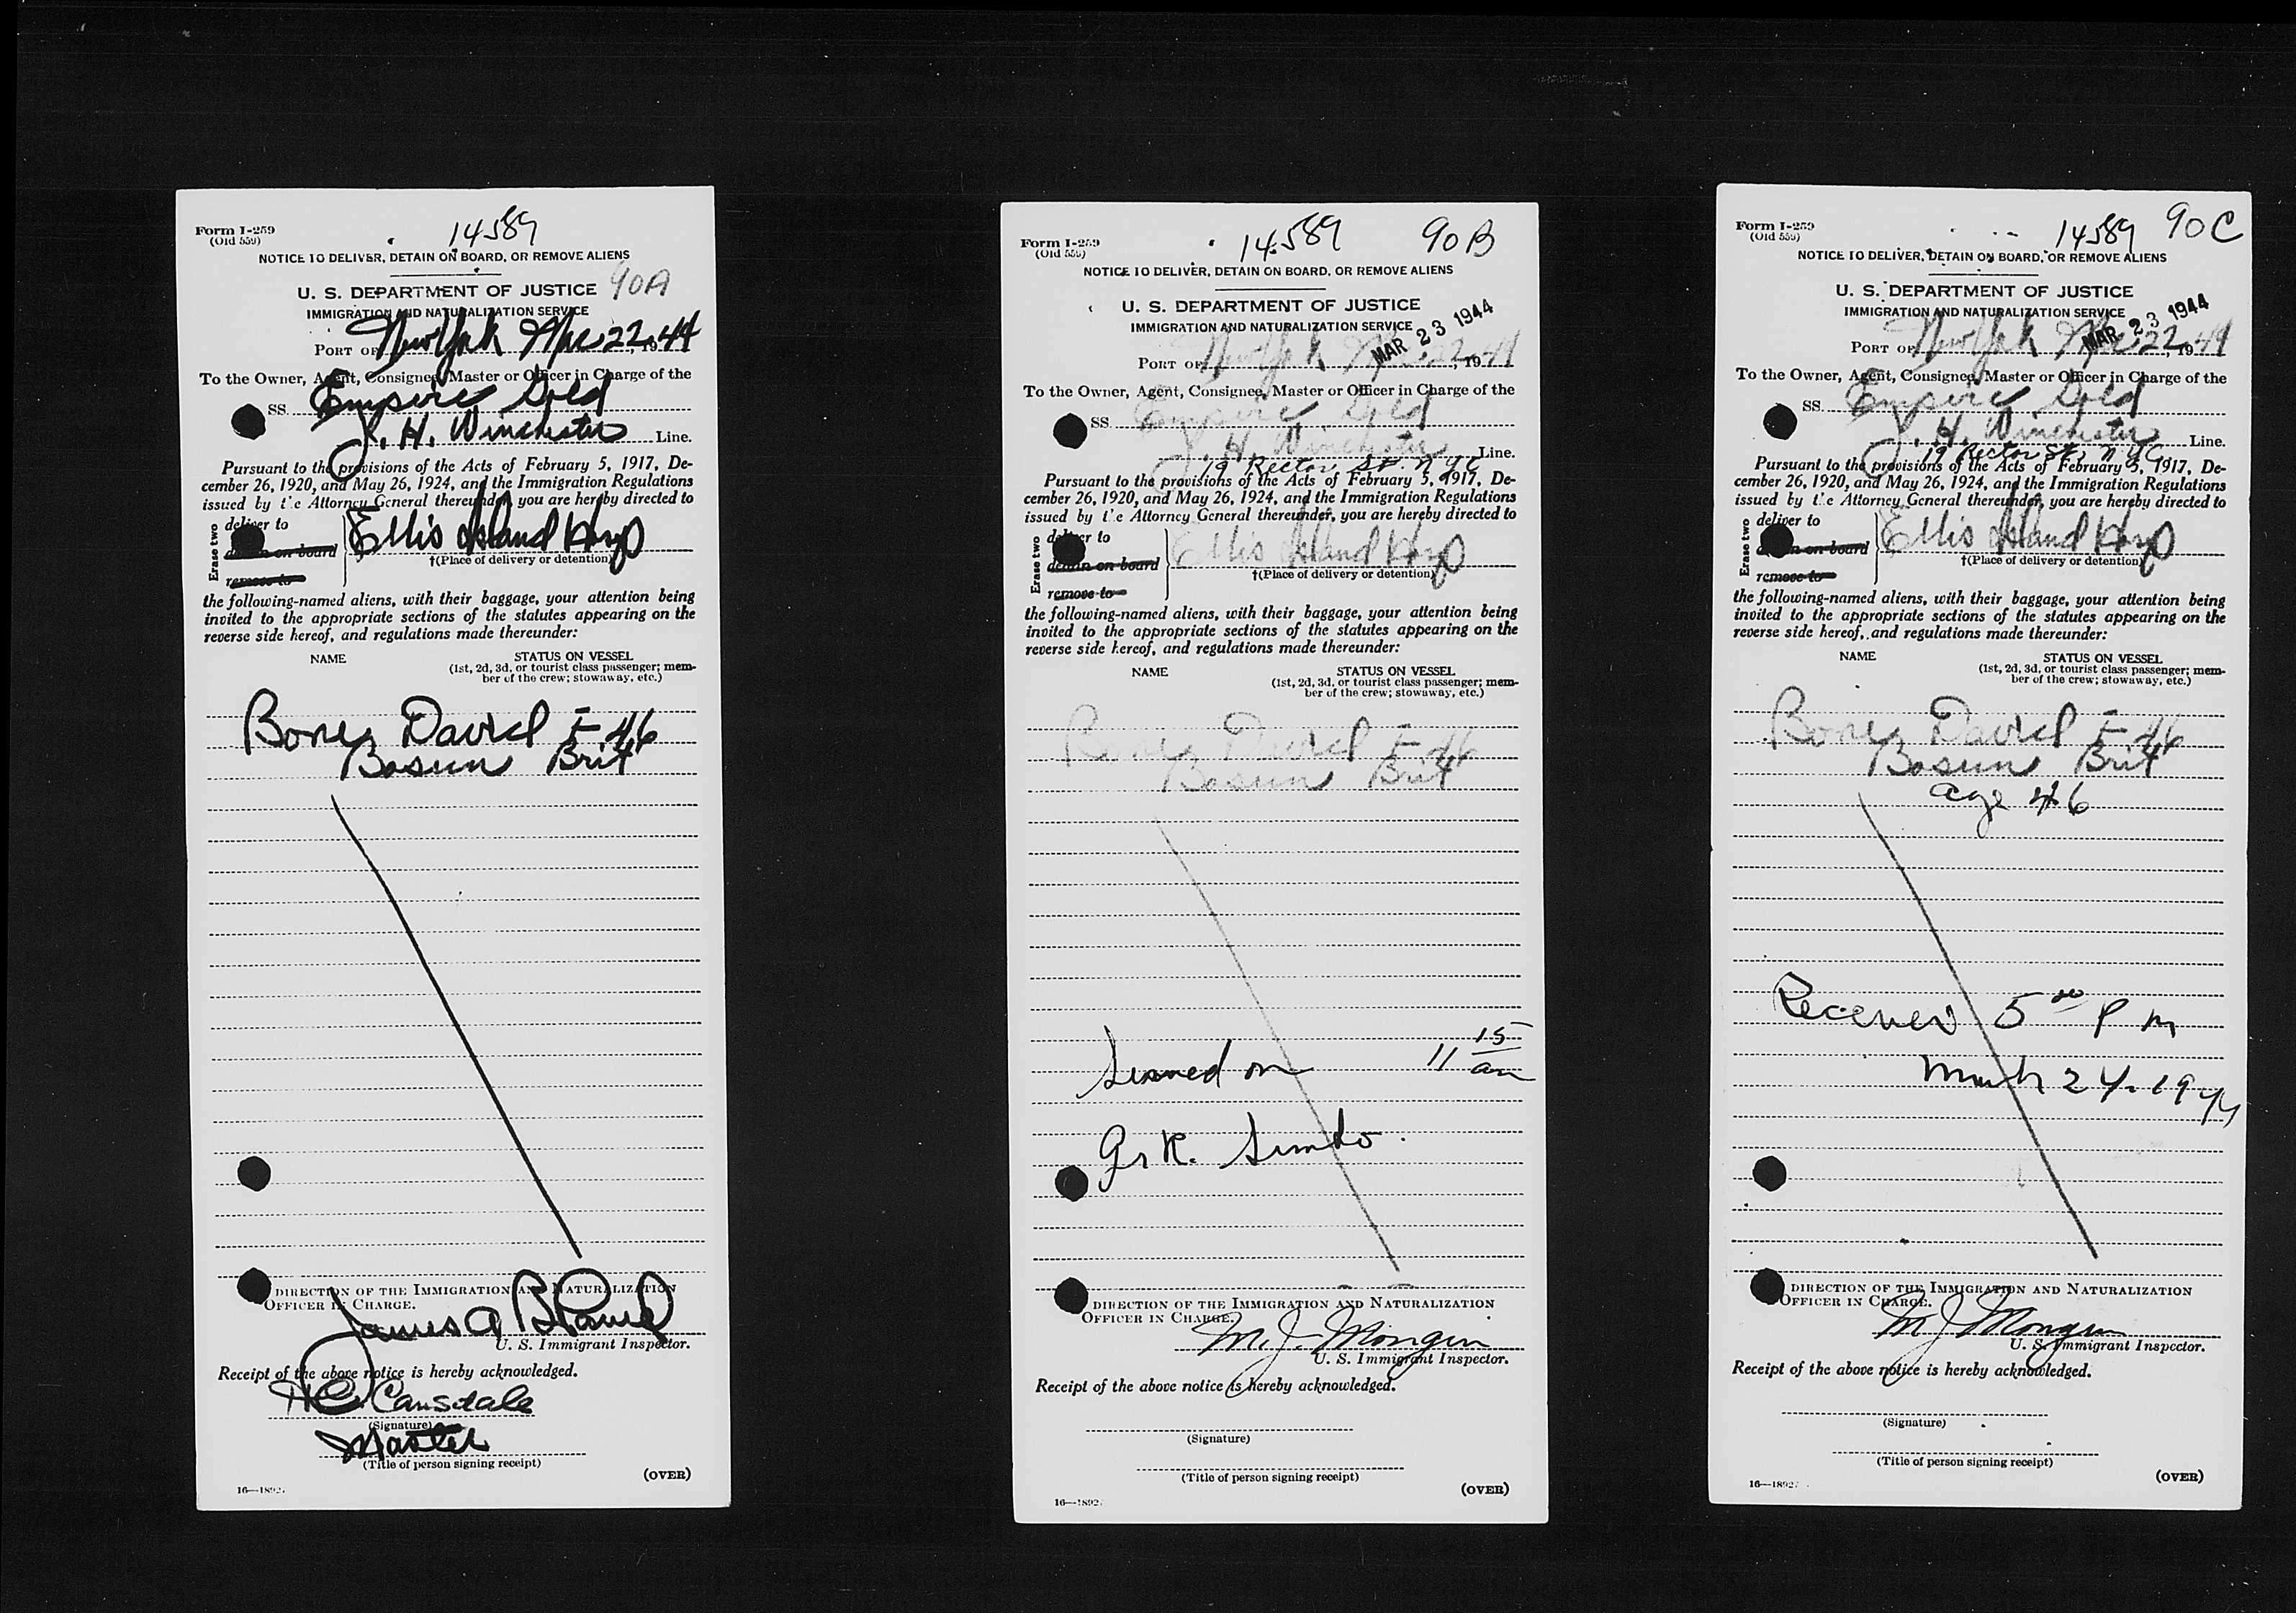 Form I-259
(Old 559)
14589
NOTICE TO DELIVER, DETAIN ON BOARD, OR REMOVE ALIENS
U. S. DEPARTMENT OF JUSTICE 90A
IMMIGRATION AND NATURALIZATION SERVICE
PORT OF New York Mar 22, 1944
To the Owner, Agent, Consignee, Master or Officer in Charge of the
SS. Empire Gold
J. H. Winchester Line.
Pursuant to the provisions of the Acts of February 5, 1917, De-
cember 26, 1920, and May 26, 1924, and the Immigration Regulations
issued by the Attorney General thereunder, you are hereby directed to
Erase two
deliver to
detain on board
remove to
Ellis Island Hosp
†(Place of delivery or detention)
the following-named aliens, with their baggage, your attention being
invited to the appropriate sections of the statutes appearing on the
reverse side hereof, and regulations made thereunder:
NAME STATUS ON VESSEL
(1st, 2d, 3d, or tourist class passenger; mem-
ber of the crew; stowaway, etc.)
Bones David 46
Bosun Brit
DIRECTION OF THE IMMIGRATION AND NATURALIZATION
OFFICER IN CHARGE.
James A
U. S. Immigrant Inspector.
Receipt of the above notice is hereby acknowledged.
H C Cansdale
(Signature)
Master
(Title of person signing receipt)
(OVER)
16—1892
Form I-259
(Old 559)
14589 90B
NOTICE TO DELIVER, DETAIN ON BOARD, OR REMOVE ALIENS
U. S. DEPARTMENT OF JUSTICE
IMMIGRATION AND NATURALIZATION SERVICE
MAR 23 1944
PORT OF New York Mar 22, 1944
To the Owner, Agent, Consignee, Master or Officer in Charge of the
SS. Empire Gold
J. H. Winchester Line.
19 Rector St. N Y C
Pursuant to the provisions of the Acts of February 5, 1917, De-
cember 26, 1920, and May 26, 1924, and the Immigration Regulations
issued by the Attorney General thereunder, you are hereby directed to
Erase two
deliver to
detain on board
remove to
Ellis Island Hosp
†(Place of delivery or detention)
the following-named aliens, with their baggage, your attention being
invited to the appropriate sections of the statutes appearing on the
reverse side hereof, and regulations made thereunder:
NAME STATUS ON VESSEL
(1st, 2d, 3d, or tourist class passenger; mem-
ber of the crew; stowaway, etc.)
Bones David 46
Bosun Brit
Served on 11 15 am
DIRECTION OF THE IMMIGRATION AND NATURALIZATION
OFFICER IN CHARGE.
M. J. Mongin
U. S. Immigrant Inspector.
Receipt of the above notice is hereby acknowledged.
(Signature)
(Title of person signing receipt)
(OVER)
16—1892
Form I-259
(Old 559)
14589 90C
NOTICE TO DELIVER, DETAIN ON BOARD, OR REMOVE ALIENS
U. S. DEPARTMENT OF JUSTICE
IMMIGRATION AND NATURALIZATION SERVICE
MAR 23 1944
PORT OF New York Mar 22, 1944
To the Owner, Agent, Consignee, Master or Officer in Charge of the
SS. Empire Gold
J. H. Winchester Line.
19 Rector St. N Y C
Pursuant to the provisions of the Acts of February 5, 1917, De-
cember 26, 1920, and May 26, 1924, and the Immigration Regulations
issued by the Attorney General thereunder, you are hereby directed to
Erase two
deliver to
detain on board
remove to
Ellis Island Hosp
†(Place of delivery or detention)
the following-named aliens, with their baggage, your attention being
invited to the appropriate sections of the statutes appearing on the
reverse side hereof, and regulations made thereunder:
NAME STATUS ON VESSEL
(1st, 2d, 3d, or tourist class passenger; mem-
ber of the crew; stowaway, etc.)
Bones David 46
Bosun Brit
age 46
Received 5 00 P m
March 24-1944
DIRECTION OF THE IMMIGRATION AND NATURALIZATION
OFFICER IN CHARGE.
M J Mongin
U. S. Immigrant Inspector.
Receipt of the above notice is hereby acknowledged.
(Signature)
(Title of person signing receipt)
(OVER)
16—1892